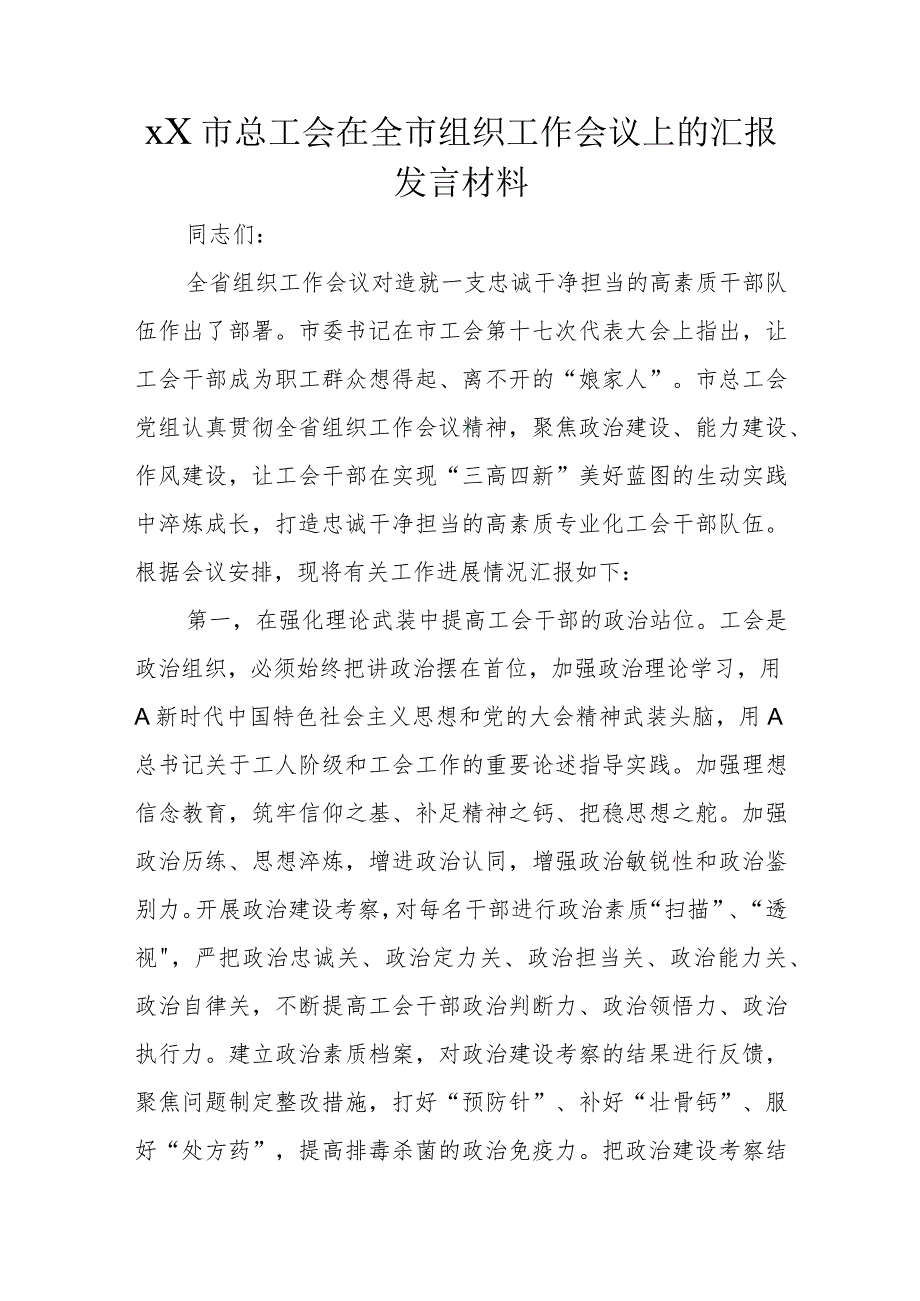 xX市总工会在全市组织工作会议上的汇报
发言材料
同志们：
全省组织工作会议对造就一支忠诚干净担当的高素质干部队
伍作出了部署。市委书记在市工会第十七次代表大会上指出，让
工会干部成为职工群众想得起、离不开的“娘家人”。市总工会
党组认真贯彻全省组织工作会议精神，聚焦政治建设、能力建设、
作风建设，让工会干部在实现“三高四新”美好蓝图的生动实践
中淬炼成长，打造忠诚干净担当的高素质专业化工会干部队伍。
根据会议安排，现将有关工作进展情况汇报如下：
第一，在强化理论武装中提高工会干部的政治站位。工会是
政治组织，必须始终把讲政治摆在首位，加强政治理论学习，用
A新时代中国特色社会主义思想和党的大会精神武装头脑，用A
总书记关于工人阶级和工会工作的重要论述指导实践。加强理想
信念教育，筑牢信仰之基、补足精神之钙、把稳思想之舵。加强
政治历练、思想淬炼，增进政治认同，增强政治敏锐性和政治鉴
别力。开展政治建设考察，对每名干部进行政治素质“扫描”、“透
视"，严把政治忠诚关、政治定力关、政治担当关、政治能力关、
政治自律关，不断提高工会干部政治判断力、政治领悟力、政治
执行力。建立政治素质档案，对政治建设考察的结果进行反馈，
聚焦问题制定整改措施，打好“预防针”、补好“壮骨钙”、服
好“处方药”，提高排毒杀菌的政治免疫力。把政治建设考察结